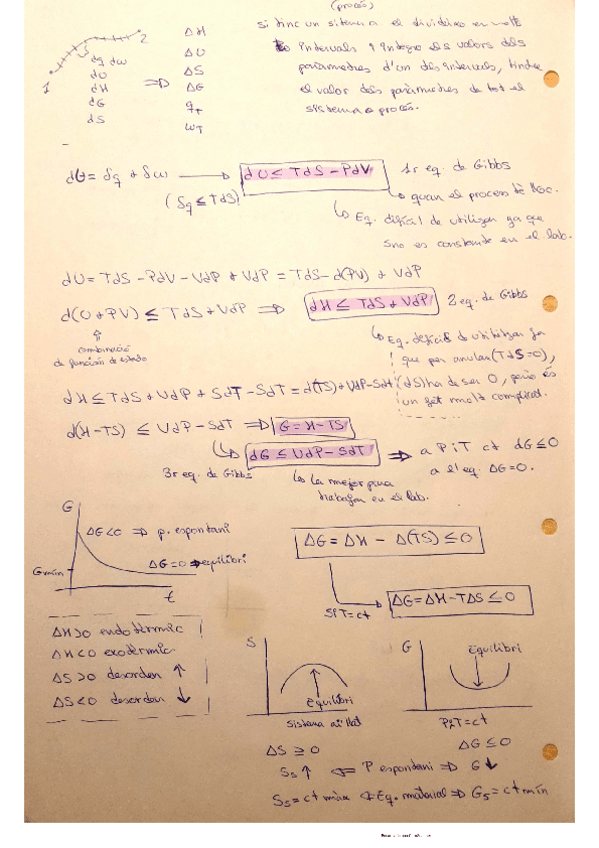 (procés)
si tinc un sistema el divideixo en molts
intervals i integro els valors dels
paràmetres d'un dels intervals, tindre
el valor dels paràmetres de tot el
sistema o procés.
1 2
dq dw
dU
dH
dG
dS
⇒
ΔH
ΔU
ΔS
ΔG
q_T
w_T
dU = δq + δw ⟶ dU ≤ TdS - PdV 1r eq. de Gibbs
(δq ≤ TdS)
↳ quan el procés té lloc.
↳ Eq. difícil de utilitzar ja que
S no es constante en el lab.
dU = TdS - PdV - VdP + VdP = TdS - d(PV) + VdP
d(U + PV) ≤ TdS + VdP ⇒ dH ≤ TdS + VdP 2 eq. de Gibbs
combinació
de funcions de estado
↳ Eq. difícil d utilitzar ja
que per anular (TdS=0),
(dS) ha de ser 0, però és
un fet molt complicat.
dH ≤ TdS + VdP + SdT - SdT = d(TS) + VdP - SdT
d(H-TS) ≤ VdP - SdT ⇒ G = H - TS
↳ dG ≤ VdP - SdT ⇒ a P i T ct dG ≤ 0
a l'eq. ΔG=0.
3r eq. de Gibbs
↳ La mejor para
trabajar en el lab.
G
ΔG<0 ⇒ p. espontani
ΔG=0 ⇒ equilibri
Gmín
t
ΔG = ΔH - Δ(TS) ≤ 0
Si T=ct
ΔG = ΔH - TΔS ≤ 0
ΔH>0 endotèrmic
ΔH<0 exotèrmic
ΔS>0 desorden ↑
ΔS<0 desorden ↓
S
Equilibri
Sistema aïllat
ΔS ≥ 0
G
Equilibri
P i T = ct
ΔG ≤ 0
Ss ↑ ⇐ P espontani ⇒ G ↓
Ss = ct màx ⇐ Eq. material ⇒ Gs = ct mín